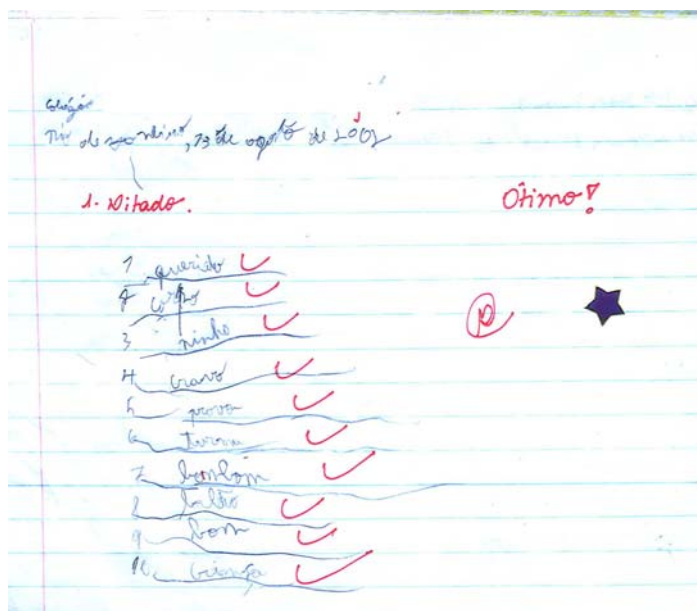 Colégio
de janeiro, 13 de agosto de 2002
1- Ditado.
Ótimo!
1 querido
2 corpo
3 ninho
4 cravo
5 prova
6 turma
7 bombom
8 balão
9 bom
10 criança